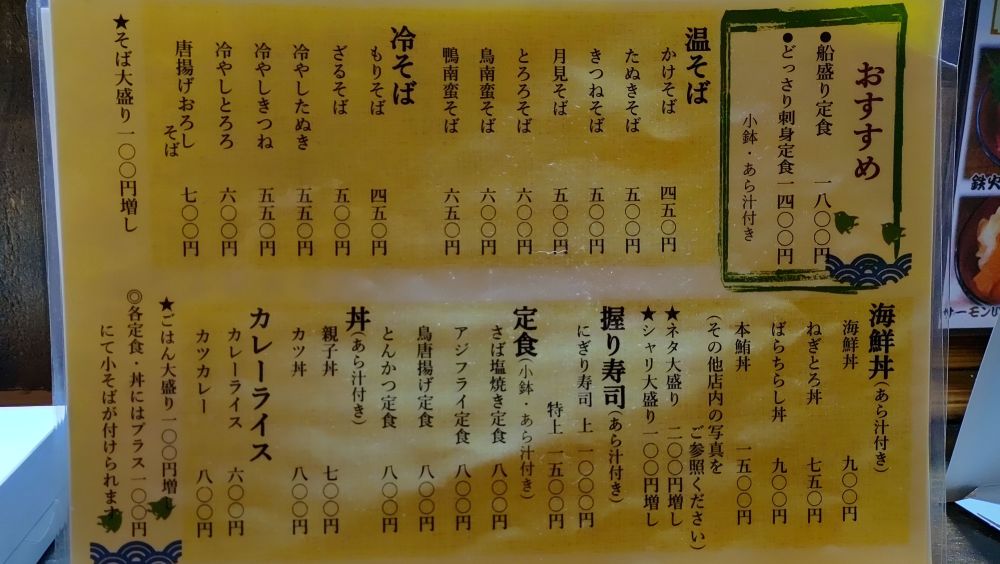 おすすめ
●船盛り定食 一八〇〇円
●どっさり刺身定食 一四〇〇円
小鉢・あら汁付き
温そば
かけそば 四五〇円
たぬきそば 五〇〇円
きつねそば 五〇〇円
月見そば 五〇〇円
とろろそば 六〇〇円
鳥南蛮そば 六〇〇円
鴨南蛮そば 六五〇円
冷そば
もりそば 四五〇円
ざるそば 五〇〇円
冷やしたぬき 五五〇円
冷やしきつね 五五〇円
冷やしとろろ 六〇〇円
唐揚げおろし
そば 七〇〇円
★そば大盛り一〇〇円増し
海鮮丼(あら汁付き)
海鮮丼 九〇〇円
ねぎとろ丼 七五〇円
ばらちらし丼 九〇〇円
本鮪丼 一五〇〇円
(その他店内の写真を
ご参照ください)
★ネタ大盛り 二〇〇円増し
★シャリ大盛り 一〇〇円増し
握り寿司(あら汁付き)
にぎり寿司 上 一〇〇〇円
特上 一五〇〇円
定食(小鉢・あら汁付き)
さば塩焼き定食 八〇〇円
アジフライ定食 八〇〇円
鳥唐揚げ定食 八〇〇円
とんかつ定食 八〇〇円
丼(あら汁付き)
親子丼 七〇〇円
カツ丼 八〇〇円
カレーライス
カレーライス 六〇〇円
カツカレー 八〇〇円
★ごはん大盛り一〇〇円増
◎各定食・丼にはプラス一〇〇円
にて小そばが付けられます
鉄火